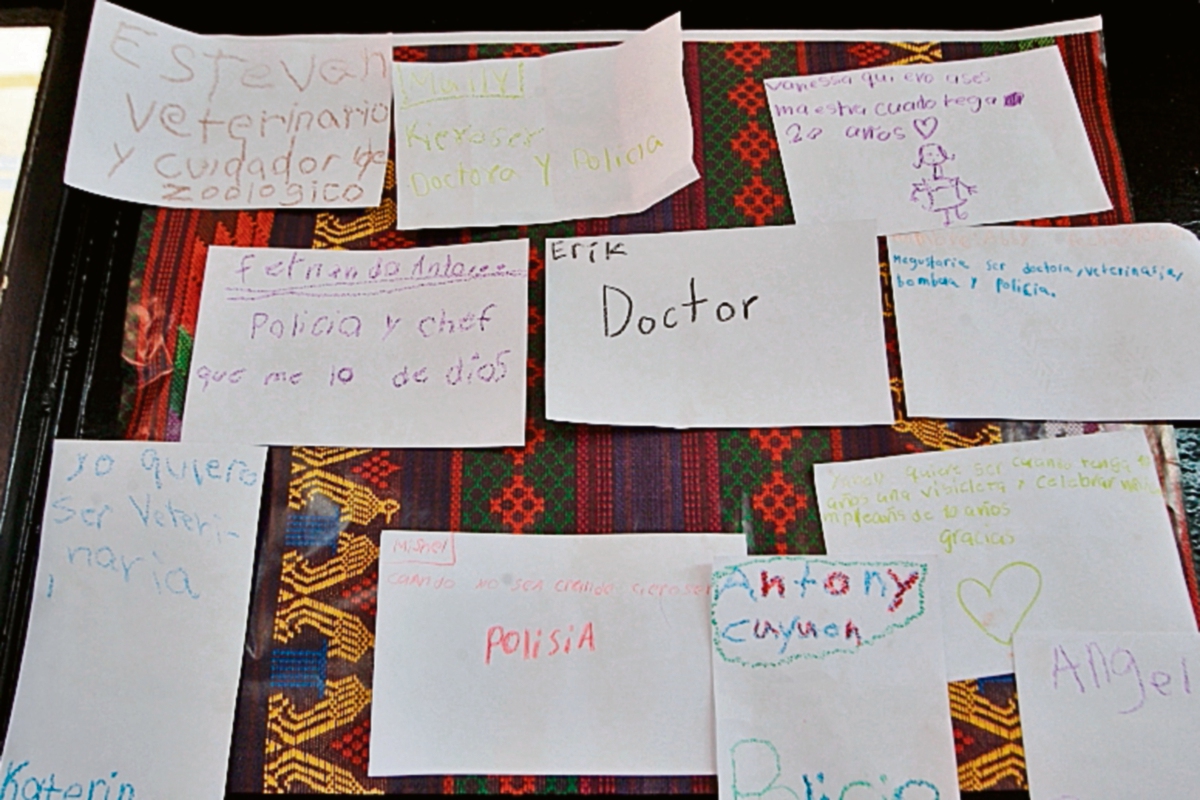 Estevan
veterinario
y cuidador de
zoologico
Maily
Kieroser
Doctora y Policia
vanessa quiero aser
maestra cuado tega
20 años
fernando
Policia y chef
que me lo de dios
Erik
Doctor
Megustaria ser doctora, veterinaria,
bombera y policia.
yo quiero
ser Veteri-
naria
Katerin
quiere ser cuando tenga
años una
de 10 años
gracias
Mishel
cuando
POLISIA
Antony
cuyuch
Policia
Angel